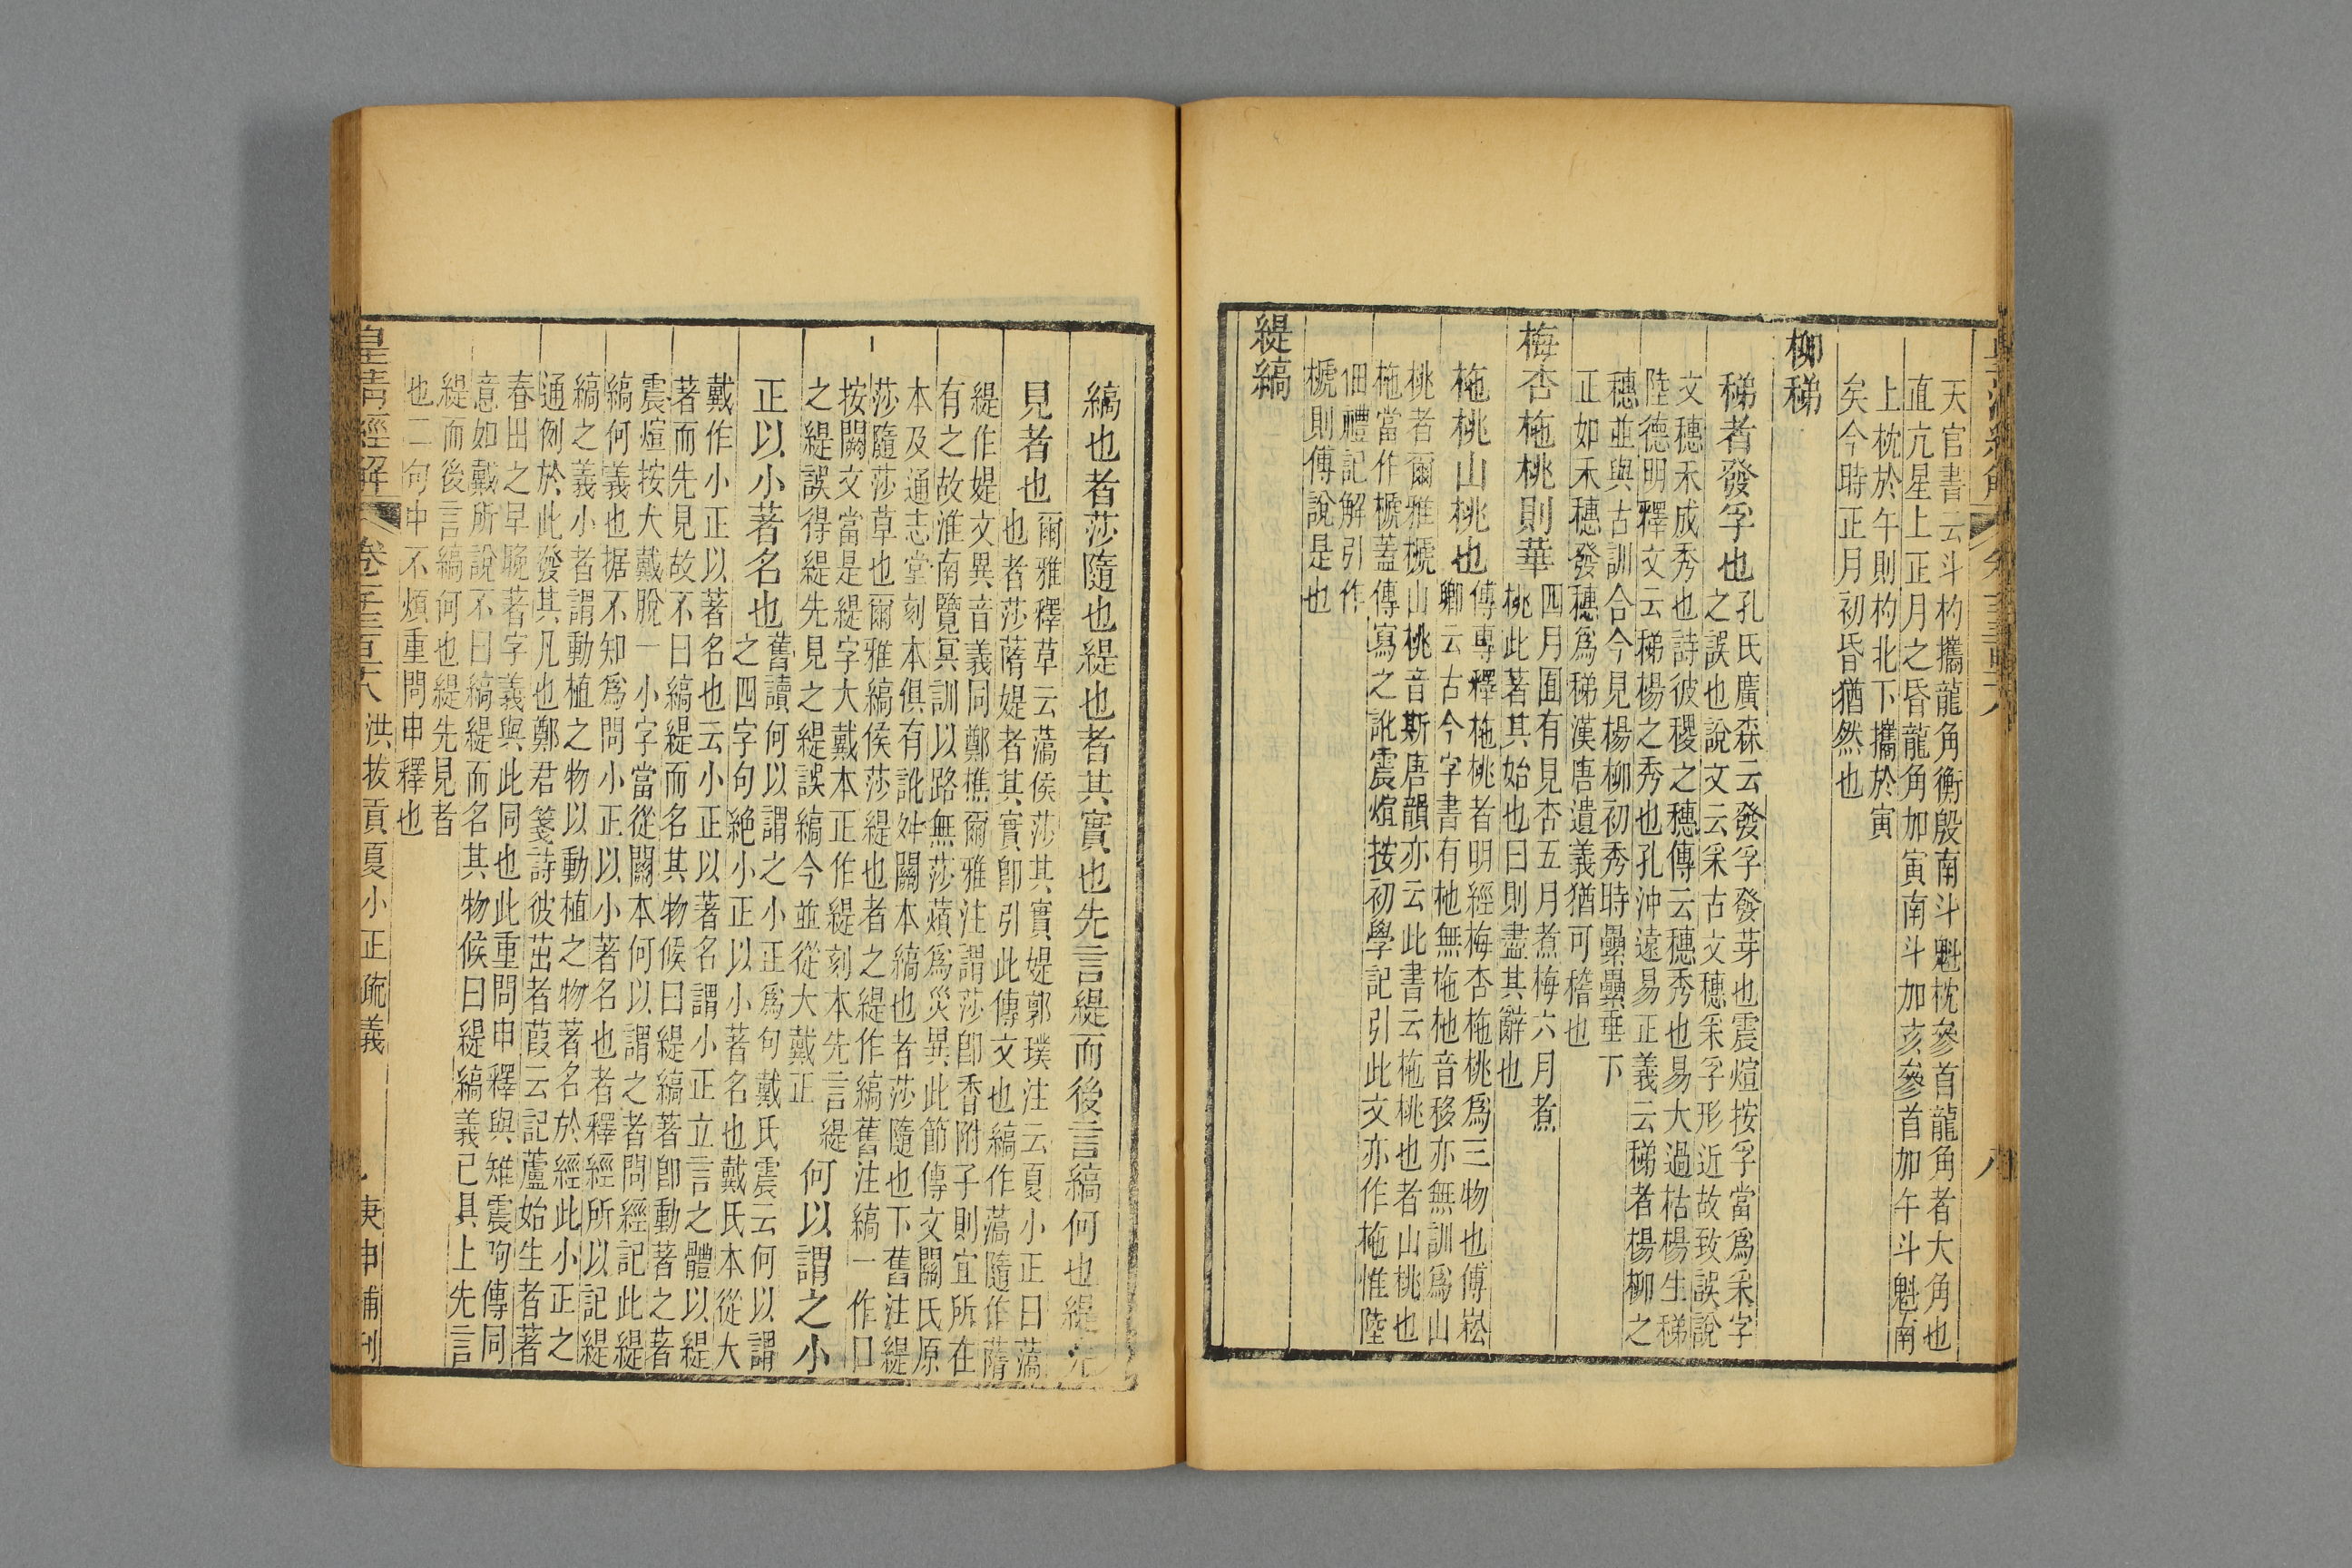 天官書云斗杓攜龍角衡殷南斗魁枕參首龍角者大角也
直亢星上正月之昏龍角加寅南斗加亥參首加午斗魁南
上枕於午則杓北下攜於寅
矣今時正月初昏猶然也
柳稊
稊者發孚也
孔氏廣森云發孚發芽也震煊按孚當爲采字
之誤也說文云采古文穗采孚形近故致誤說
文穗禾成秀也詩彼稷之穗傳云穗秀也易大過枯楊生稊
陸德明釋文云稊楊之秀也孔沖遠易正義云稊者楊柳之
穗並與古訓合今見楊柳初秀時纍纍垂下
正如禾穗發穗爲稊漢唐遺義猶可稽也
梅杏杝桃則華
四月囿有見杏五月煮梅六月煮
桃此著其始也曰則盡其辭也
杝桃山桃也
傳專釋杝桃者明經梅杏杝桃爲三物也傅崧
卿云古今字書有杝無杝杝音移亦無訓爲山
桃者爾雅榹山桃音斯唐韻亦云此書云杝桃也者山桃也
杝當作榹蓋傳寫之訛震煊按初學記引此文亦作杝惟陸
佃禮記解引作
榹則傳說是也
緹縞
縞也者莎隨也緹也者其實也先言緹而後言縞何也緹先
見者也
爾雅釋草云薃侯莎其實媞郭璞注云夏小正曰薃
也者莎蓨媞者其實卽引此傳文也縞作薃隨作蓨
緹作媞文異音義同鄭樵爾雅注謂莎卽香附子則宜所在
有之故淮南覽冥訓以路無莎薠爲災異此節傳文關氏原
本及通志堂刻本俱有訛舛關本縞也者莎隨也下舊注緹
莎隨莎草也爾雅縞侯莎緹也者之緹作縞舊注縞一作口
按闕文當是緹字大戴本正作緹刻本先言緹
之緹誤得緹先見之緹誤縞今並從大戴正
何以謂之小
正以小著名也
舊讀何以謂之小正爲句戴氏震云何以謂
之四字句絶小正以小著名也戴氏本從大
戴作小正以著名也云小正以著名謂小正立言之體以緹
著而先見故不曰縞緹而名其物候曰緹縞著卽動著之著
震煊按大戴脫一小字當從關本何以謂之者問經記此緹
縞何義也据不知爲問小正以小著名也者釋經所以記緹
縞之義小者謂動植之物以動植之物著名於經此小正之
通例於此發其凡也鄭君箋詩彼茁者葭云記蘆始生者著
春出之早晚著字義與此同也此重問申釋與雉震呴傳同
意如戴所說不曰縞緹而名其物候曰緹縞義已具上先言
緹而後言縞何也緹先見者
也二句中不煩重問申釋也
皇清經解 卷一千三百十八 洪拔貢夏小正疏義 庚申補刊